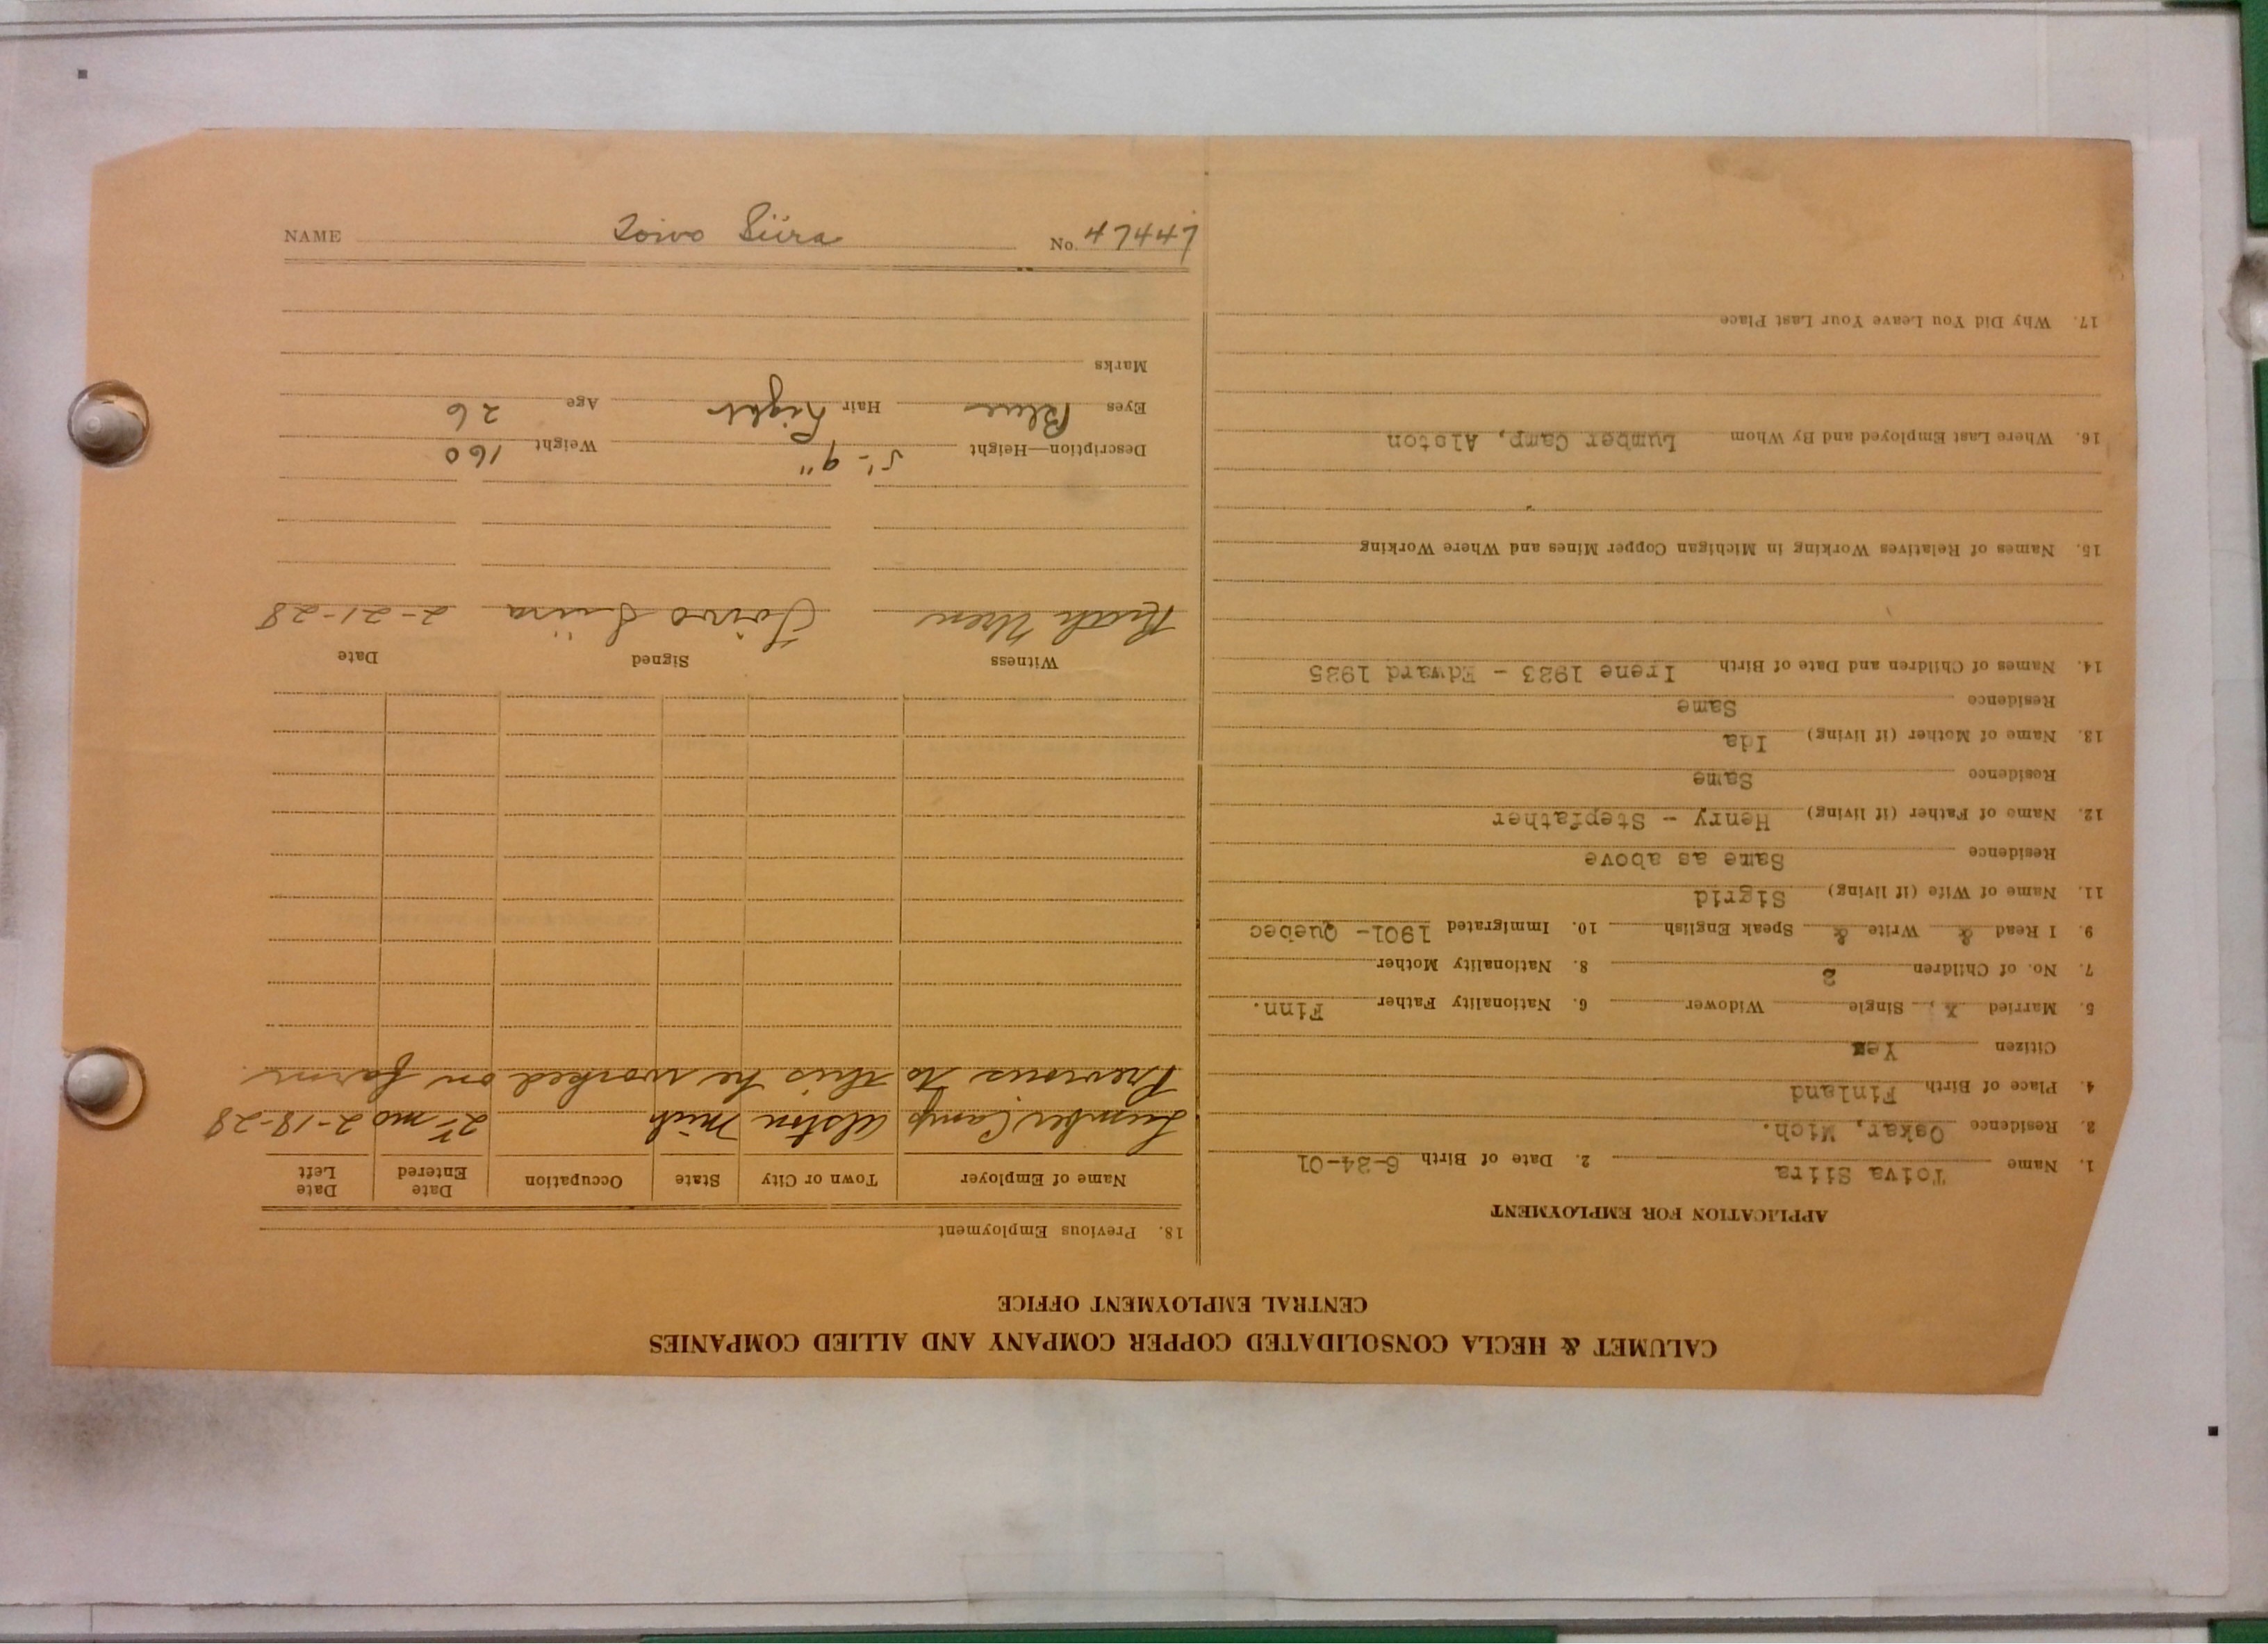 CALUMET & HECLA CONSOLIDATED COPPER COMPANY AND ALLIED COMPANIES
CENTRAL EMPLOYMENT OFFICE
APPLICATION FOR EMPLOYMENT
1. Name Toiva Siira 2. Date of Birth 6-24-01
3. Residence Oskar, Mich.
4. Place of Birth Finland
Citizen Yes
5. Married X, Single Widower 6. Nationality Father Finn.
7. No. of Children 2 8. Nationality Mother
9. I Read & Write & Speak English 10. Immigrated 1901- Quebec
11. Name of Wife (if living) Sigrid
Residence Same as above
12. Name of Father (if living) Henry - Stepfather
Residence Same
13. Name of Mother (if living) Ida
Residence Same
14. Names of Children and Date of Birth Irene 1923 - Edward 1925
15. Names of Relatives Working in Michigan Copper Mines and Where Working
16. Where Last Employed and By Whom Lumber Camp, Alston
17. Why Did You Leave Your Last Place
18. Previous Employment
Name of Employer Town or City State Occupation Date Entered Date Left
Lumber Camp Alston Mich 2 mo 2-18-28
Previous to this he worked on farm.
Witness Signed Date
Uren Toivo Siira 2-21-28
Description—Height 5'-9" Weight 160
Eyes Blue Hair Light Age 26
Marks
NAME Toivo Siira No. 47447